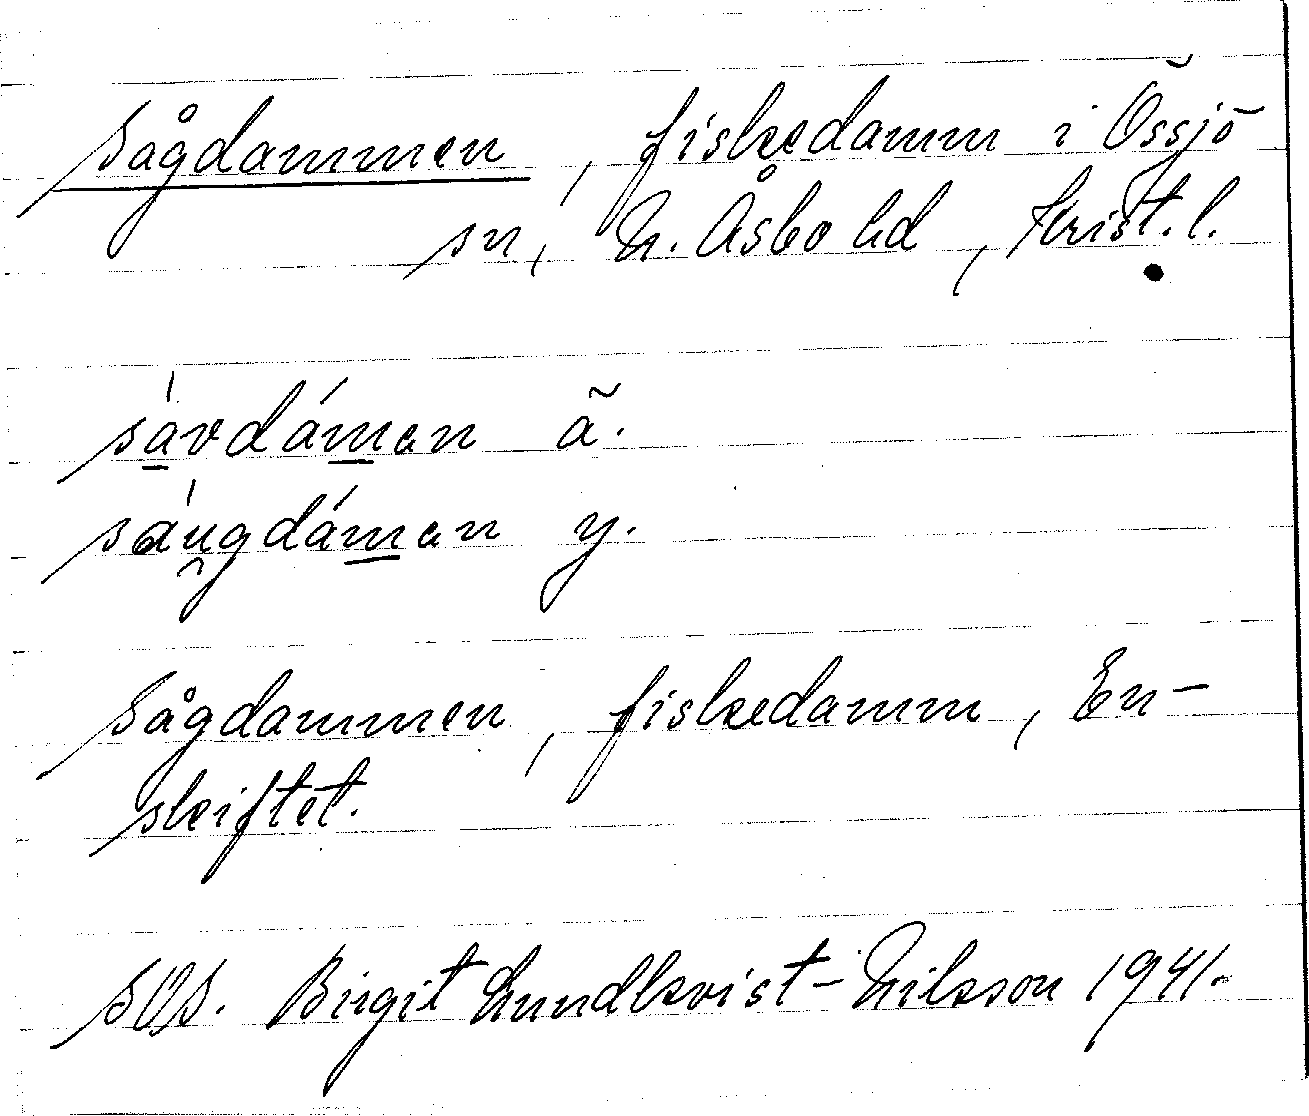 Sågdammen, fiskedamm i Össjö
sn, N. Åsbo hd, Krist. l.
sávdámen ã.
sáu̯gdámen y.
Sågdammen, fiskedamm, En-
skiftet.
SOS. Birgit Lundkvist-Nilsson 1941.